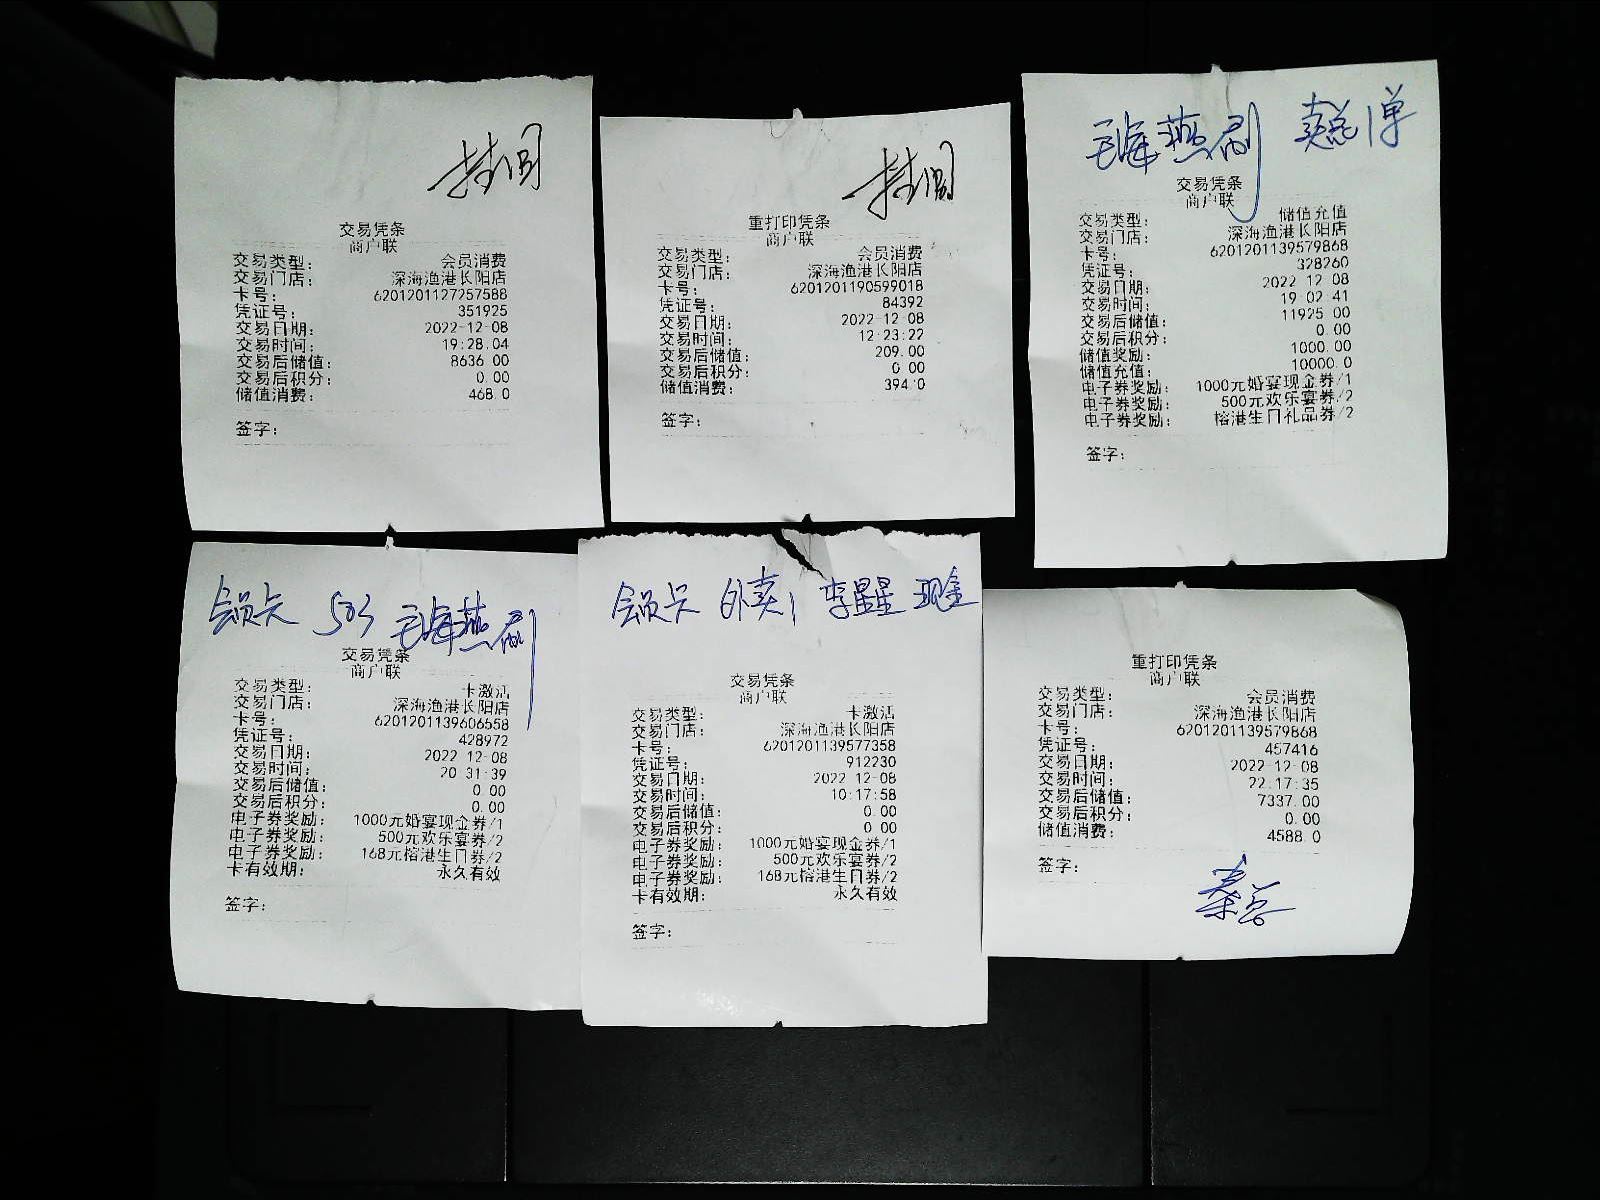 交易凭条
商户联
交易类型: 会员消费
交易门店: 深海渔港长阳店
卡号: 6201201127257588
凭证号: 351925
交易日期: 2022-12-08
交易时间: 19:28:04
交易后储值: 8636.00
交易后积分: 0.00
储值消费: 468.0
签字:
重打印凭条
商户联
交易类型: 会员消费
交易门店: 深海渔港长阳店
卡号: 6201201190599018
凭证号: 84392
交易日期: 2022-12-08
交易时间: 12:23:22
交易后储值: 209.00
交易后积分: 0.00
储值消费: 394.0
签字:
毛海燕刷 1单
交易凭条
商户联
交易类型: 储值充值
交易门店: 深海渔港长阳店
卡号: 6201201139579868
凭证号: 328260
交易日期: 2022-12-08
交易时间: 19:02:41
交易后储值: 11925.00
交易后积分: 0.00
储值奖励: 1000.00
储值充值: 10000.0
电子券奖励: 1000元婚宴现金券/1
电子券奖励: 500元欢乐宴券/2
电子券奖励: 榕港生日礼品券/2
签字:
会员卡 503 毛海燕刷
交易凭条
商户联
交易类型: 卡激活
交易门店: 深海渔港长阳店
卡号: 6201201139606558
凭证号: 428972
交易日期: 2022-12-08
交易时间: 20:31:39
交易后储值: 0.00
交易后积分: 0.00
电子券奖励: 1000元婚宴现金券/1
电子券奖励: 500元欢乐宴券/2
电子券奖励: 168元榕港生日券/2
卡有效期: 永久有效
签字:
会员卡 外卖1 李星星 现金
交易凭条
商户联
交易类型: 卡激活
交易门店: 深海渔港长阳店
卡号: 6201201139577358
凭证号: 912230
交易日期: 2022-12-08
交易时间: 10:17:58
交易后储值: 0.00
交易后积分: 0.00
电子券奖励: 1000元婚宴现金券/1
电子券奖励: 500元欢乐宴券/2
电子券奖励: 168元榕港生日券/2
卡有效期: 永久有效
签字:
重打印凭条
商户联
交易类型: 会员消费
交易门店: 深海渔港长阳店
卡号: 6201201139579868
凭证号: 457416
交易日期: 2022-12-08
交易时间: 22:17:35
交易后储值: 7337.00
交易后积分: 0.00
储值消费: 4588.0
签字:
秦总